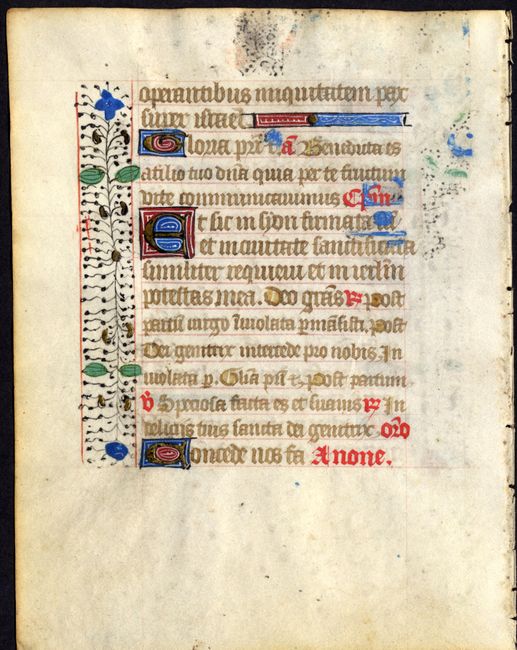 operantibus iniquitatem pax
super israel
Gloria pr̄i &c̄ a Benedicta es
a filio tuo dn̄a quia per te fructum
vite communicauimus Cpl̄m
Et sic in syon firmata su
et in ciuitate sanctificata
similiter requieui et in ierl̄m
potestas mea. Deo grās R̷ post
partū uirgo īuiolata pmāsisti. post
Dei genitrix intercede pro nobis. In
uiolata p. Glīa pr̄i &c. Post partum
v̷ Speciosa facta es et suauis R̷ In
delicijs tuis sancta dei genitrix or̄o
Concede nos fa A none.